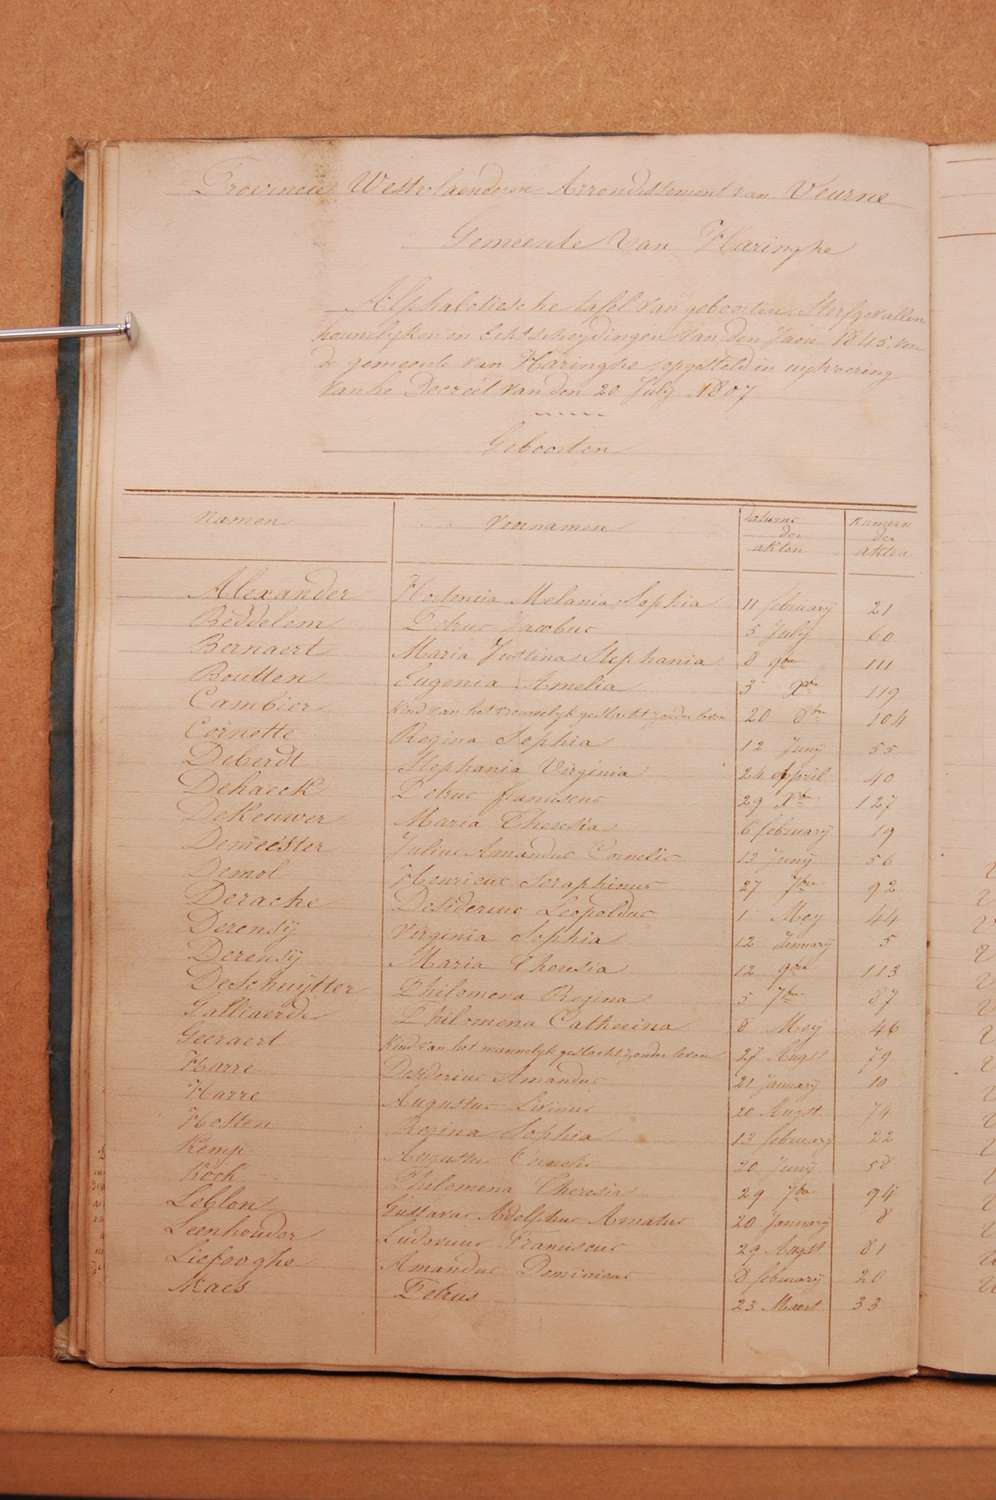 Provincie Westvlaenderen Arrondissement van Veurne
Gemeente van Haringhe
Alphabetische tafel van geboorten, Sterfgevallen
houwelijken en Echtscheydingen van den Jare 1845 van
de gemeente van Haringhe, opgesteld in uytvoering
van he Decreet van den 20 July 1807
Geboorten
Namen Voornamen Datums der akten Numero der akten
Alexander Melania Sophia 11 february 21
Beddelem Petrus Jacobus 5 July 60
Bernaert Maria Justina Stephania 8 9bre 111
Boutten Eugenia Amelia 3 Xbre 119
Cambier Kind van het vrouwelijk geslacht zonder leven 20 8bre 104
Cornette Regina Sophia 12 Juny 55
Deberdt Stephania Virginia 24 April 40
Dehaeck Petrus Franciscus 29 Xbre 127
DeKeuwer Maria Theresia 6 february 19
Demeester Julius Amandus Cornelis 13 Juny 56
Demol Henricus Seraphinus 27 7bre 92
Derache Desiderius Leopoldus 1 Mey 44
Derensÿ Virginia Sophia 12 January 5
Derensÿ Maria Theresia 12 9bre 113
DeSchuÿtter Philomena Regina 5 7bre 87
Galliaerde Philomena Catherina 8 Mey 46
Geeraert Kind van het mannelijk geslacht zonder leven 27 Augst 79
Harre Desiderius Amandus 21 January 10
Harre Augustus Livinus 20 Augst 74
Hosten Regina Sophia 13 february 22
Kemp Augustus Cornelis 20 Juny 58
Kock Philomena Theresia 29 7bre 94
Leblon Gustavus Adolphus Amatus 20 January 8
Leenhouder Ludovicus Franciscus 29 Augst 81
Liefooghe Amandus Dominicus 8 february 20
Maes Petrus 23 Maert 33